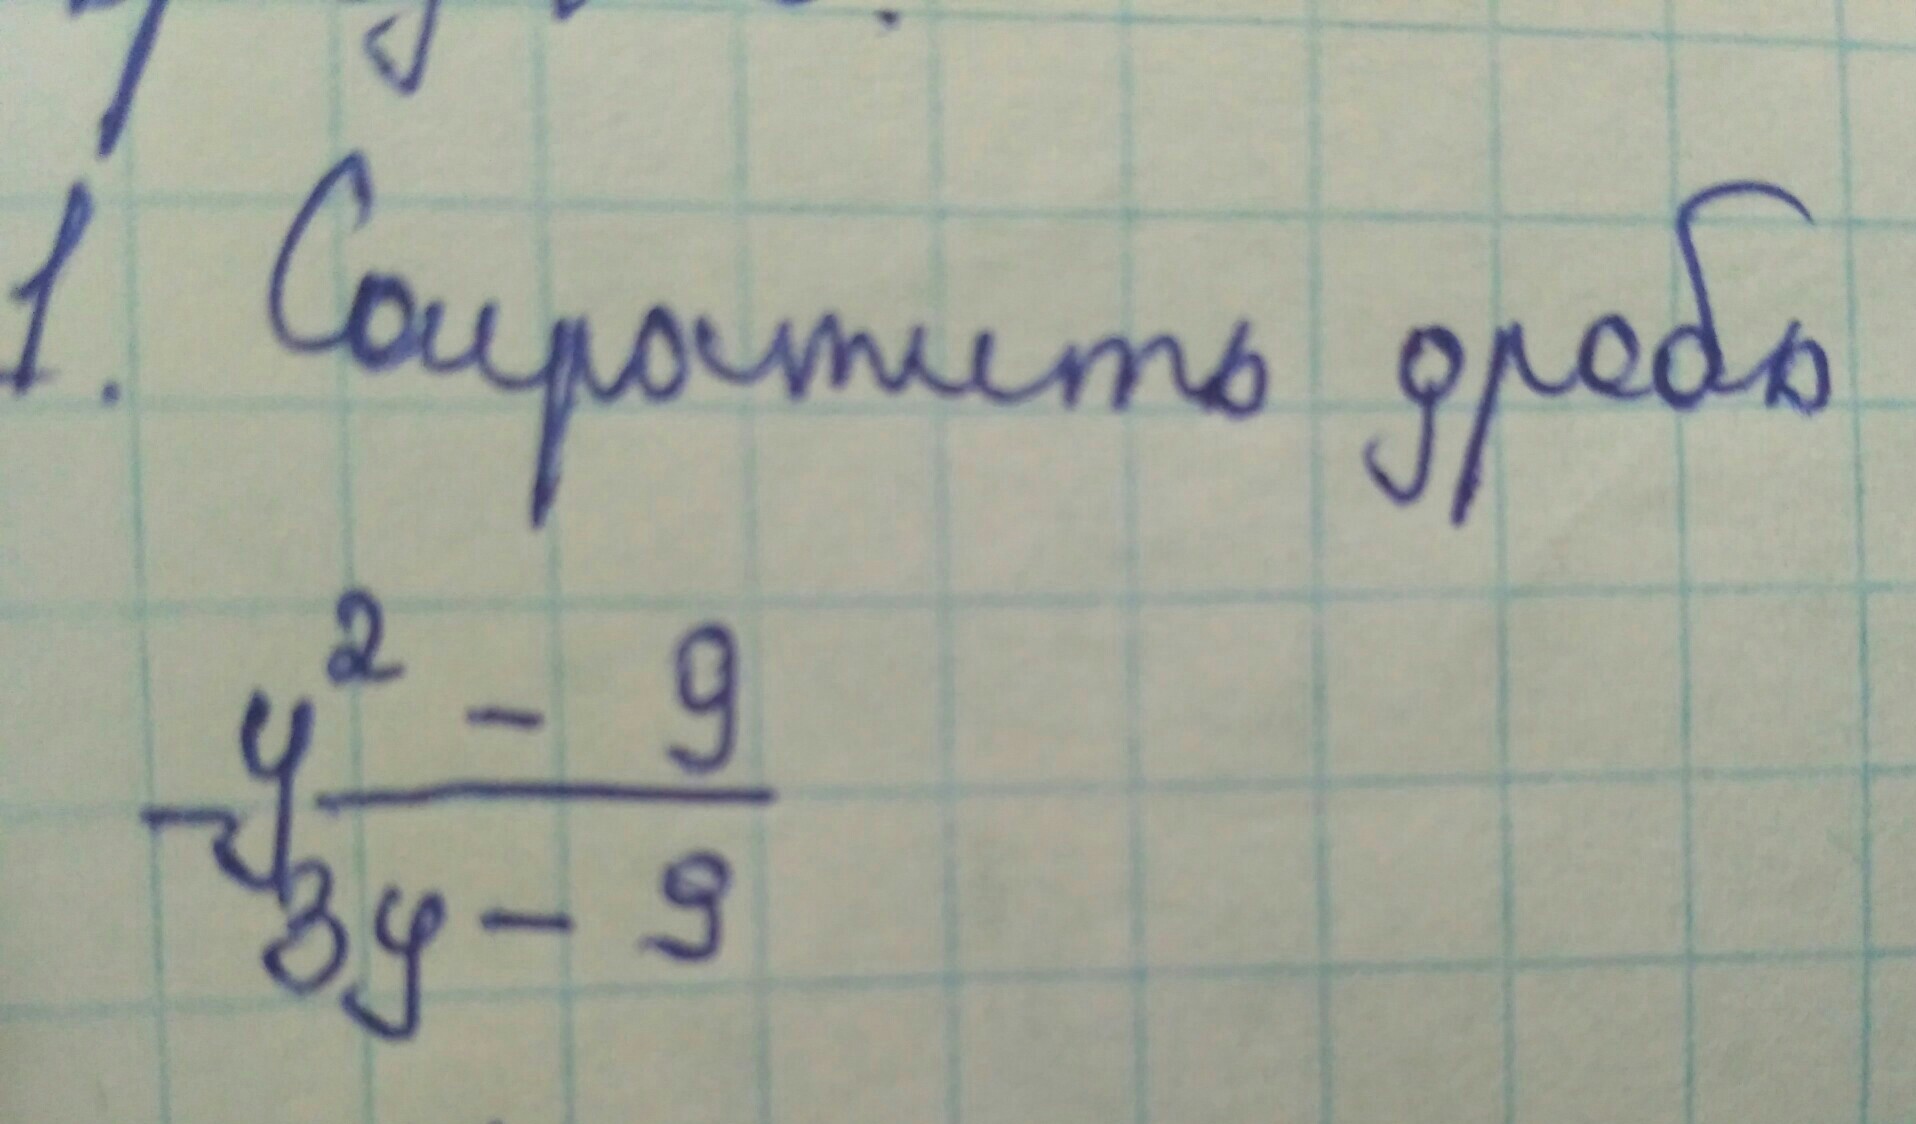 1. Сократить дробь
y² - 9
3y - 9